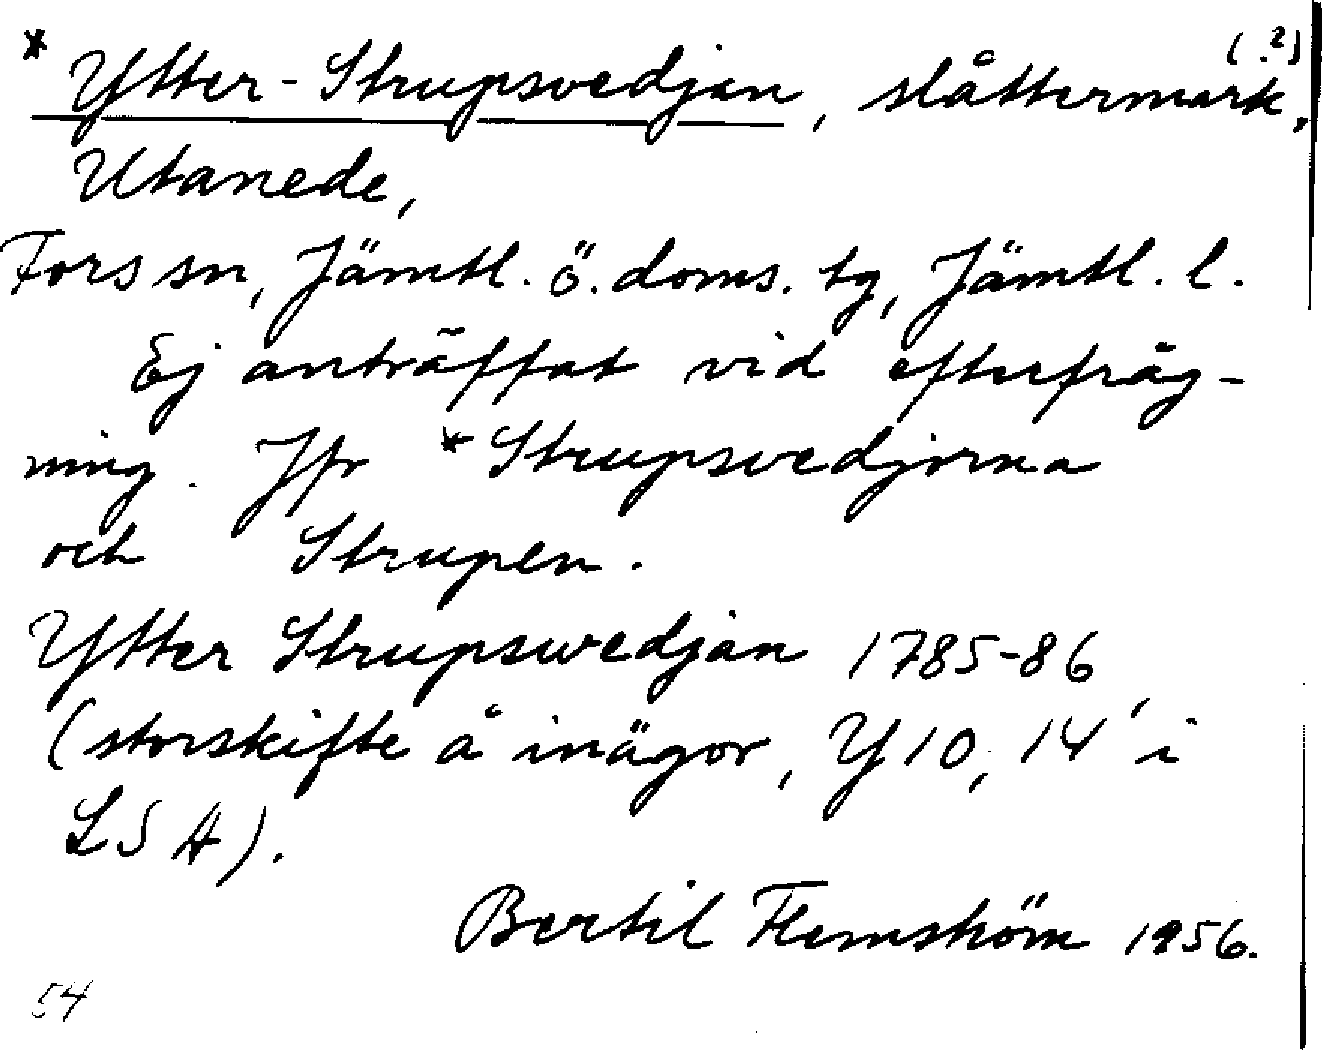 * Ytter-Strupsvedjan, slåttermark(?),
Utanede,
Fors sn, Jämtl. ö. doms. tg, Jämtl. l.
Ej anträffat vid efterfråg-
ning. Jfr *Strupsvedjorna
och Strupen.
Ytter Strupswedjan 1785-86,
(storskifte å inägor, Y10, 14 i
LSA).
Bertil Flemström 1956.
54